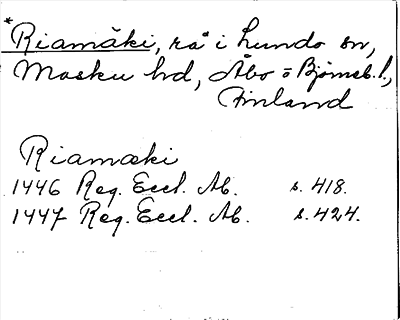 * Riamäki, rå i Lundo sn,
Masku hd, Åbo o Björneb. l.,
Finland
Riamæki
1446 Reg. Eccl. Ab. s. 418.
1447 Reg. Eccl. Ab. s. 424.